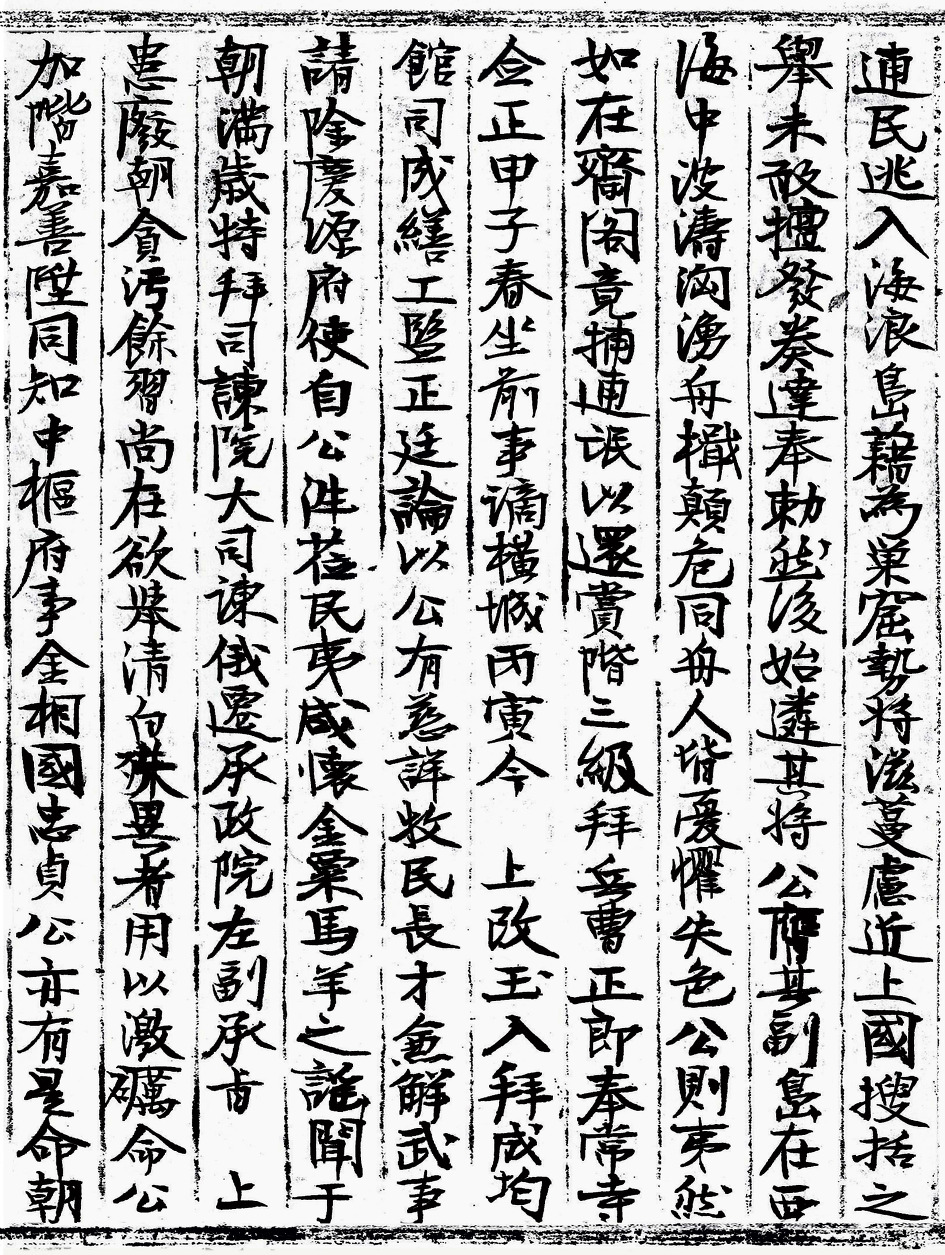 逋民逃入海浪島藉為巢窟勢將滋蔓慮近上國搜括之
舉未敢擅發奏達奉勅然後始遴其將公膺其副島在西
海中波濤洶湧舟檝顛危同舟人皆憂懼失色公則夷然
如在齋閣竟捕逋氓以還賞階三級拜兵曹正郎奉常寺
僉正甲子春坐前事謫橫城丙寅今　上改玉入拜成均
館司成繕工監正廷論以公有慈詳牧民長才兼解武事
請除慶源府使自公涖莅民夷咸懷金粟馬羊之謠聞于
朝滿歲特拜司諫院大司諫俄遷承政院左副承旨　上
患廢朝貪污餘習尚在欲擧清白殊異者用以激礪命公
加階嘉善陞同知中樞府事金相國忠貞公亦有是命朝